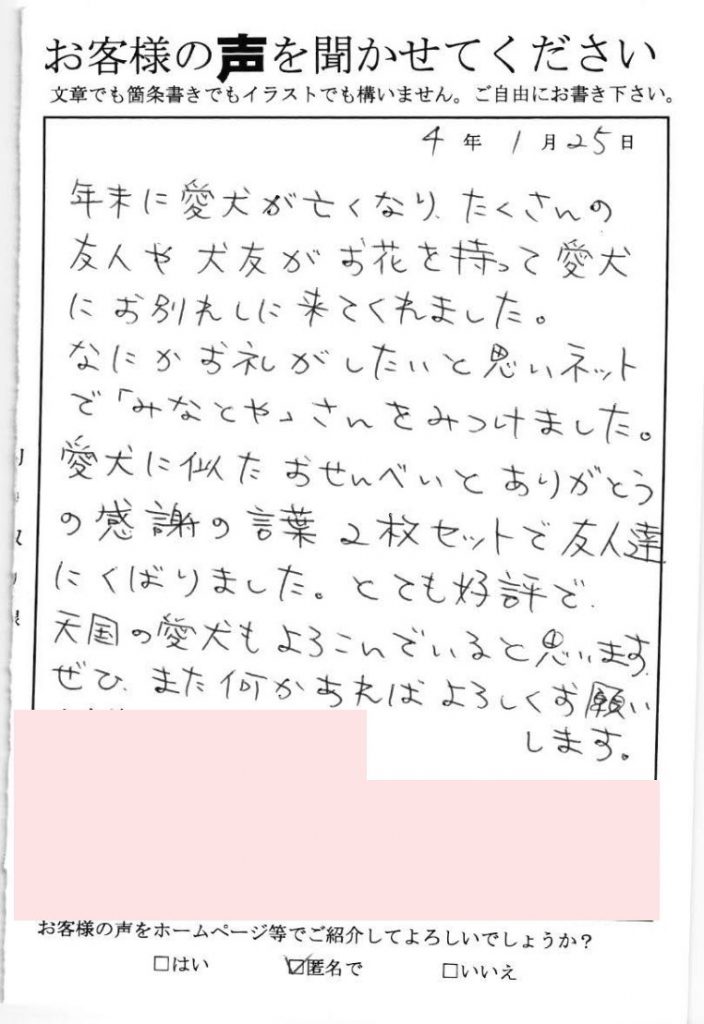 お客様の声を聞かせてください
文章でも箇条書きでもイラストでも構いません。ご自由にお書き下さい。
4年1月25日
年末に愛犬が亡くなり、たくさんの
友人や犬友がお花を持って愛犬
にお別れしに来てくれました。
なにかお礼がしたいと思いネット
で「みなとや」さんをみつけました。
愛犬に似たおせんべいとありがとう
の感謝の言葉2枚セットで友人達
にくばりました。とても好評で、
天国の愛犬もよろこんでいると思います。
ぜひ、また何かあればよろしくお願い
します。
お客様の声をホームページ等でご紹介してよろしいでしょうか？
□はい ☑匿名で □いいえ